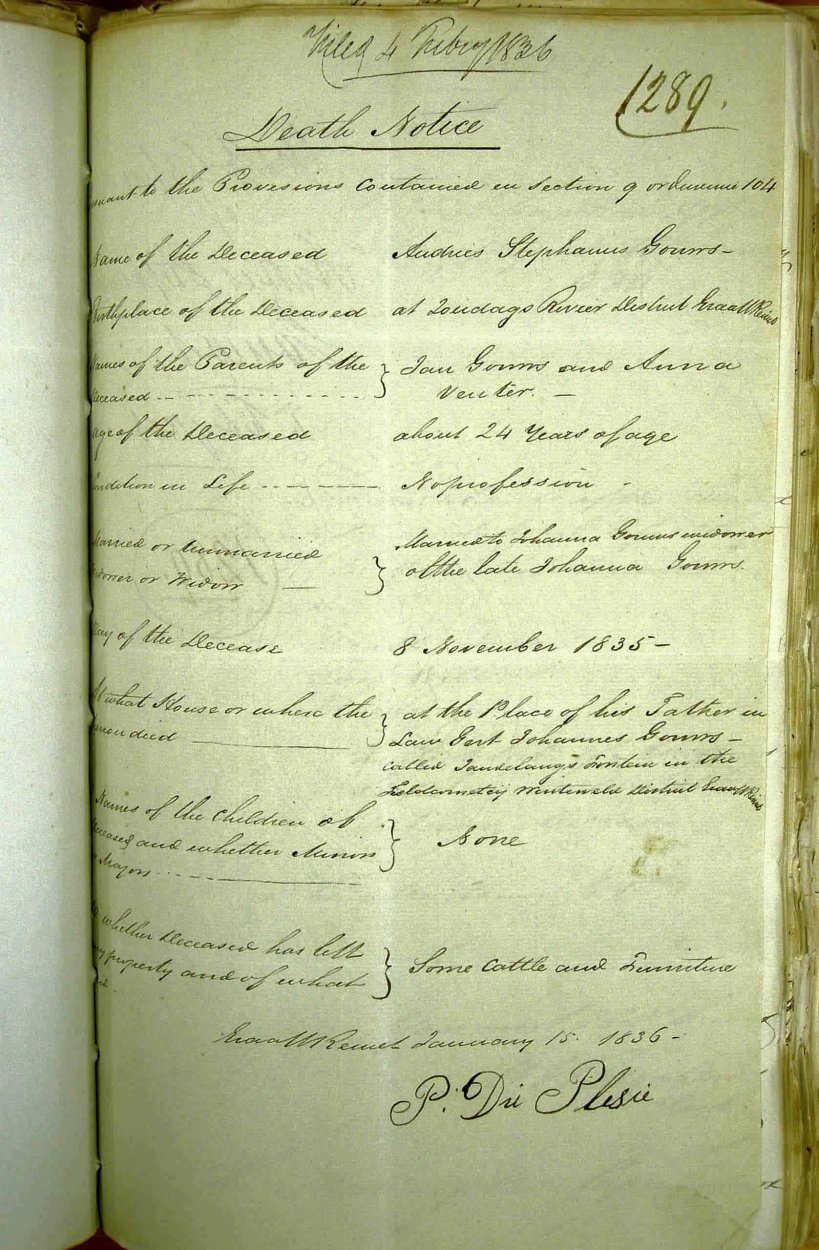 Filed 4 Febry 1836
1289.
Death Notice
suant to the Provisions contained in Section 9 ordinance 104
Name of the Deceased Andries Stephanus Gouws -
Birthplace of the Deceased at Zondags Rivier District Graaff Reinet
Names of the Parents of the Jan Gouws and Anna
deceased Venter. -
Age of the Deceased about 24 Years of age
Condition in Life No profession -
Married or Unmarried Married to Johanna Gouws widower
Widower or Widow of the late Johanna Gouws.
Day of the Decease 8 November 1835 -
At what House or where the at the Place of his Father in
person died Law Gert Johannes Gouws -
called Fontein in the
Veldcornetcy Winterveld District Graaff Reinet
Names of the Children of
deceased and whether Minors None
or Majors
whether Deceased has left
any property and of what Some Cattle and Furniture
Graaff Reinet January 15. 1836 -
P. Du Plesie